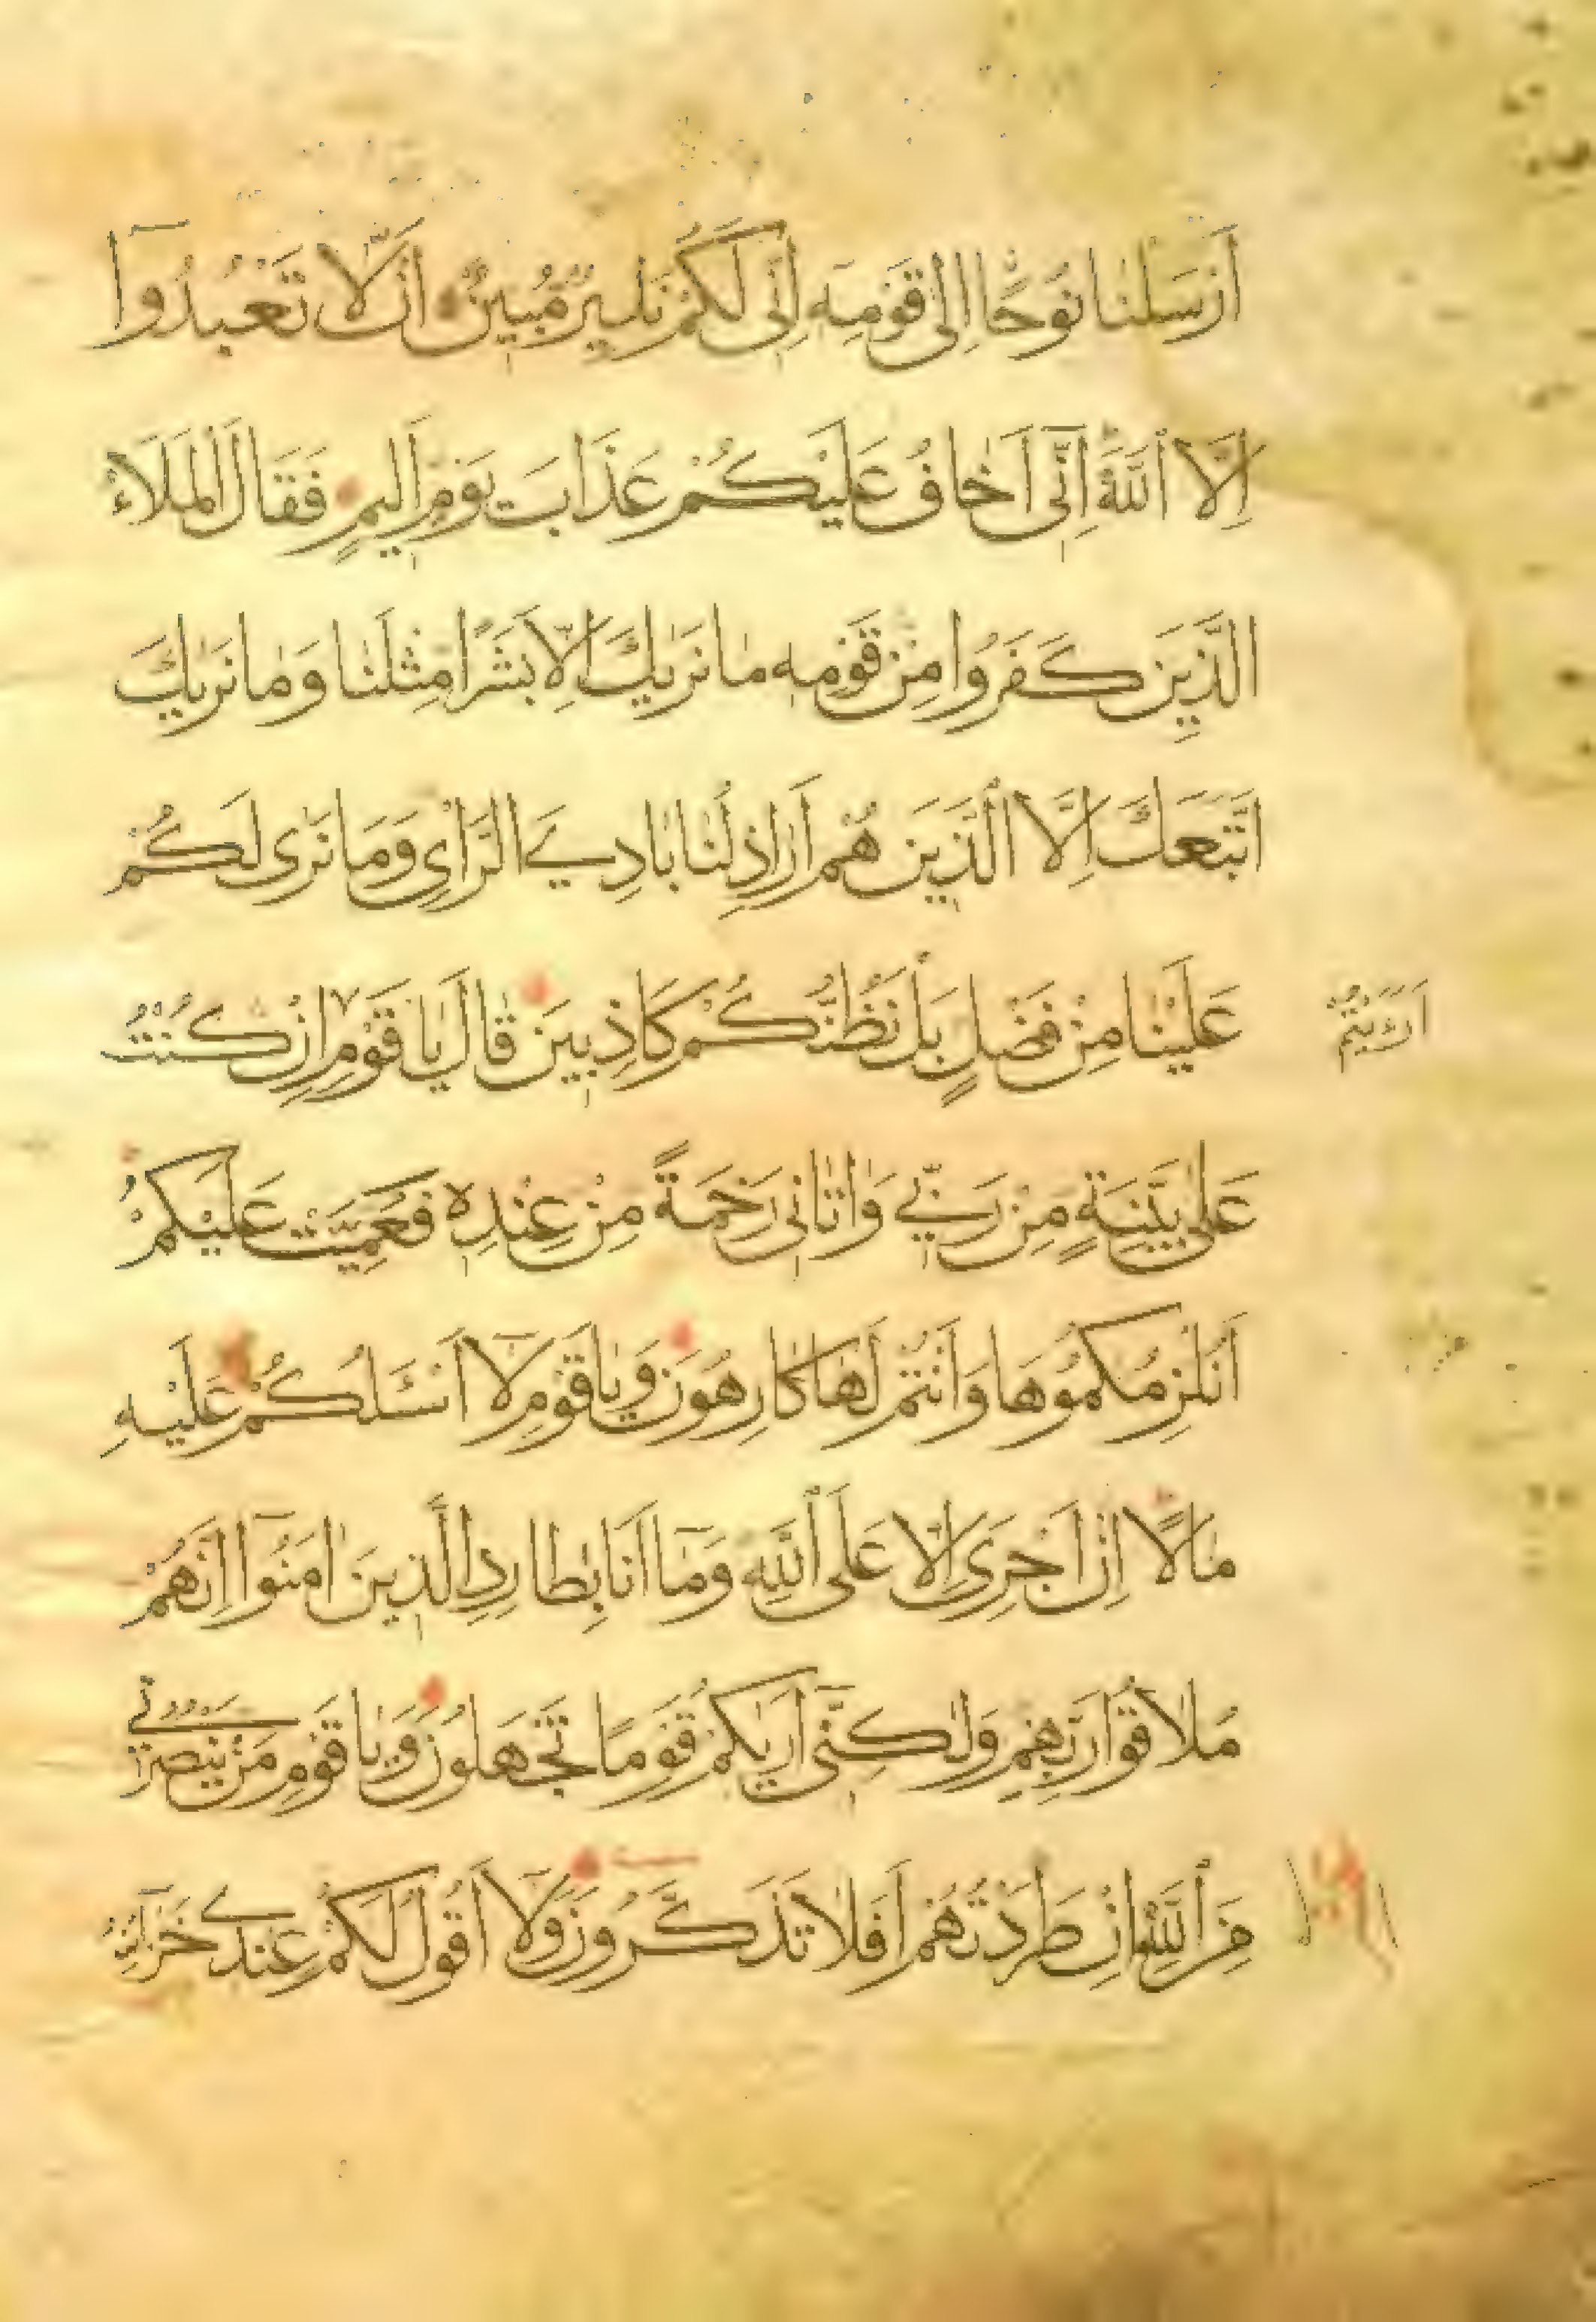 اَرْسَلْنَا نُوحًا اِلٰى قَوْمِهٓ اِنّٖى لَكُمْ نَذٖيرٌ مُبٖينٌ اَنْ لَا تَعْبُدُوٓا
اِلَّا اللّٰهَ اِنّٖٓى اَخَافُ عَلَيْكُمْ عَذَابَ يَوْمٍ اَلٖيمٍ فَقَالَ الْمَلَاُ
الَّذٖينَ كَفَرُوا مِنْ قَوْمِهٖ مَا نَرٰيكَ اِلَّا بَشَرًا مِثْلَنَا وَمَا نَرٰيكَ
اتَّبَعَكَ اِلَّا الَّذٖينَ هُمْ اَرَاذِلُنَا بَادِيَ الرَّاْىِ وَمَا نَرٰى لَكُمْ
عَلَيْنَا مِنْ فَضْلٍ بَلْ نَظُنُّكُمْ كَاذِبٖينَ قَالَ يَا قَوْمِ اِنْ كُنْتُ
اَرَءَيْتُمْ
عَلٰى بَيِّنَةٍ مِنْ رَبّٖى وَاٰتَانٖى رَحْمَةً مِنْ عِنْدِهٖ فَعُمِّيَتْ عَلَيْكُمْ
اَنُلْزِمُكُمُوهَا وَاَنْتُمْ لَهَا كَارِهُونَ وَيَا قَوْمِ لَٓا اَسْـَٔلُكُمْ عَلَيْهِ
مَالًا اِنْ اَجْرِىَ اِلَّا عَلَى اللّٰهِ وَمَٓا اَنَا بِطَارِدِ الَّذٖينَ اٰمَنُوٓا اِنَّهُمْ
مُلَاقُوا رَبِّهِمْ وَلٰكِنّٖٓى اَرٰيكُمْ قَوْمًا تَجْهَلُونَ وَيَا قَوْمِ مَنْ يَنْصُرُنٖى
مِنَ اللّٰهِ اِنْ طَرَدْتُهُمْ اَفَلَا تَذَكَّرُونَ وَلَٓا اَقُولُ لَكُمْ عِنْدٖى خَزَٓائِنُ